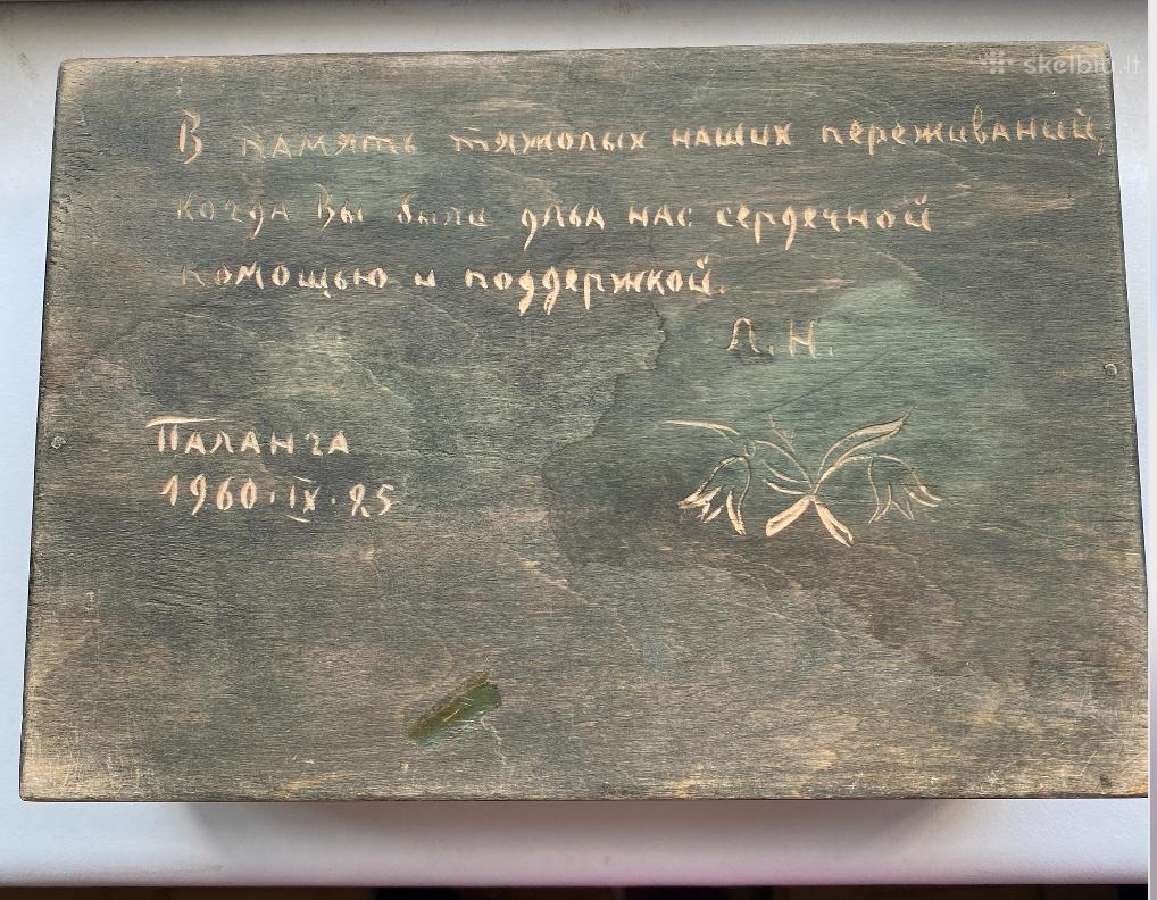 skelbiu.lt
В память тяжолых наших переживаний,
когда Вы были дльа нас сердечной
помощью и поддержкой.
Л. Н.
Паланга
1960 · IX · 25